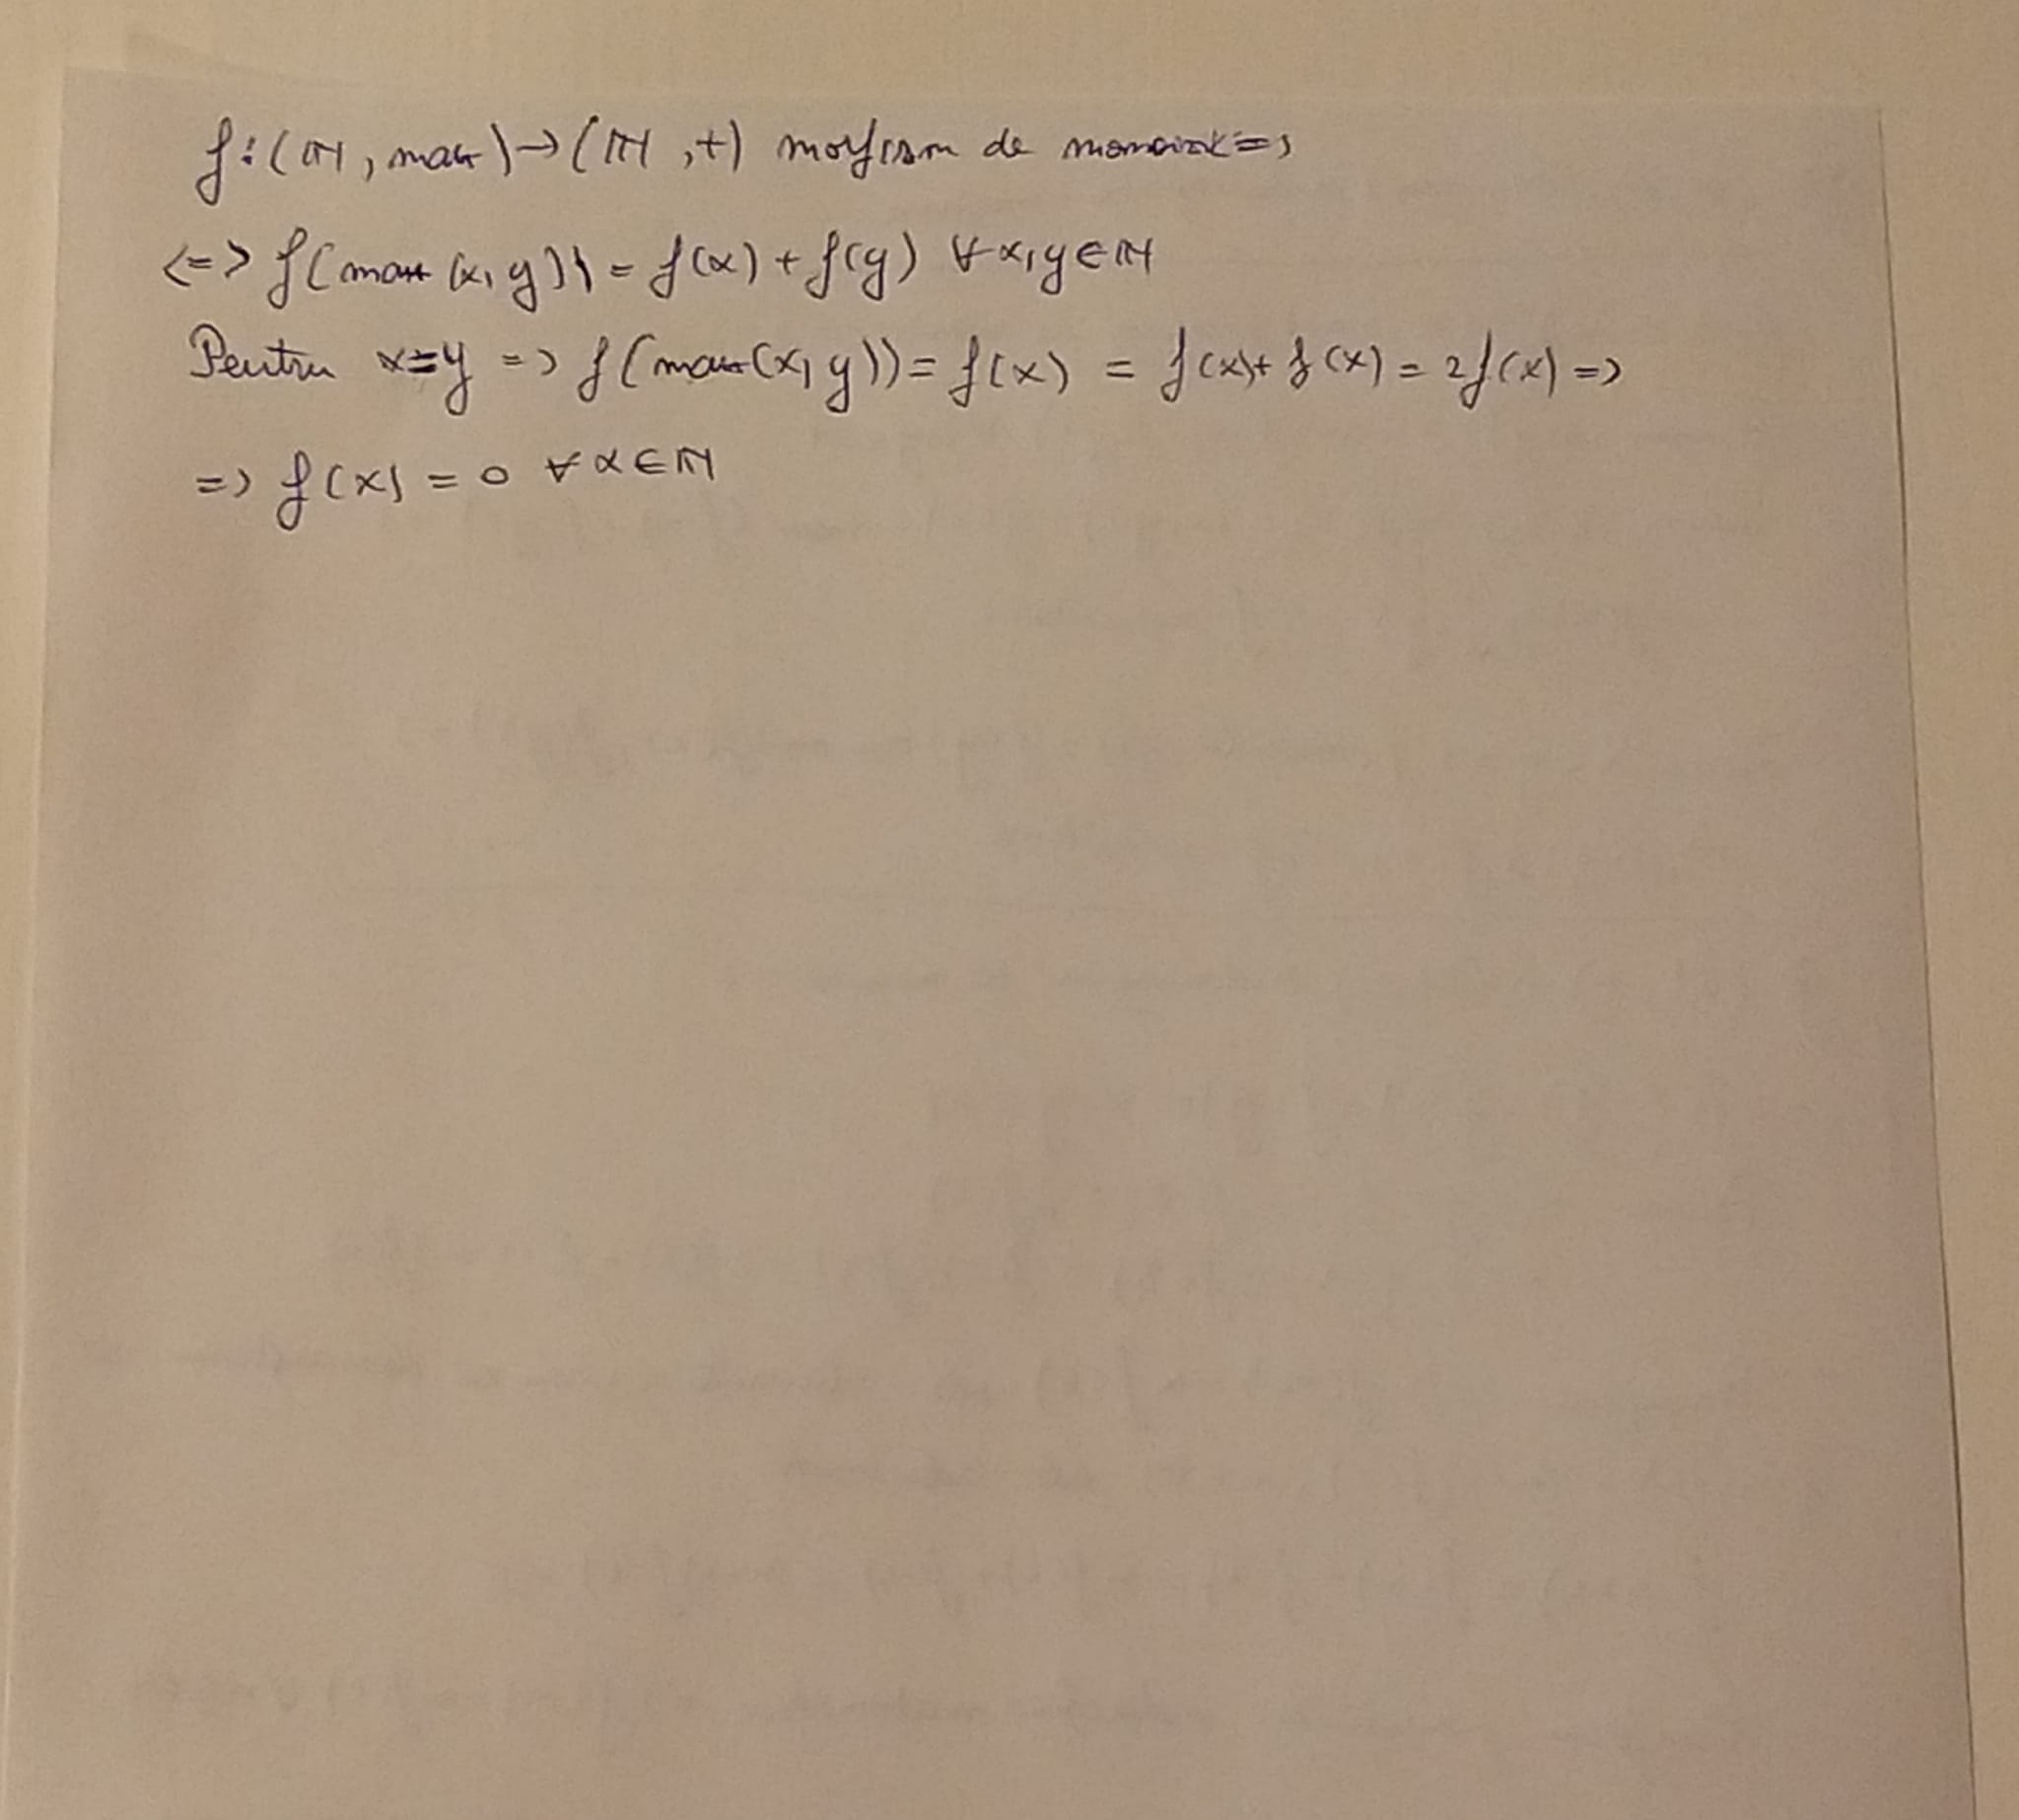 f:(ℕ, max)→(ℕ,+) morfism de monoizi <=>
<=> f(max(x,y)) = f(x) + f(y) ∀x,y∈ℕ
Pentru x=y => f(max(x,y)) = f(x) = f(x)+f(x) = 2f(x) =>
=> f(x) = 0 ∀x∈ℕ